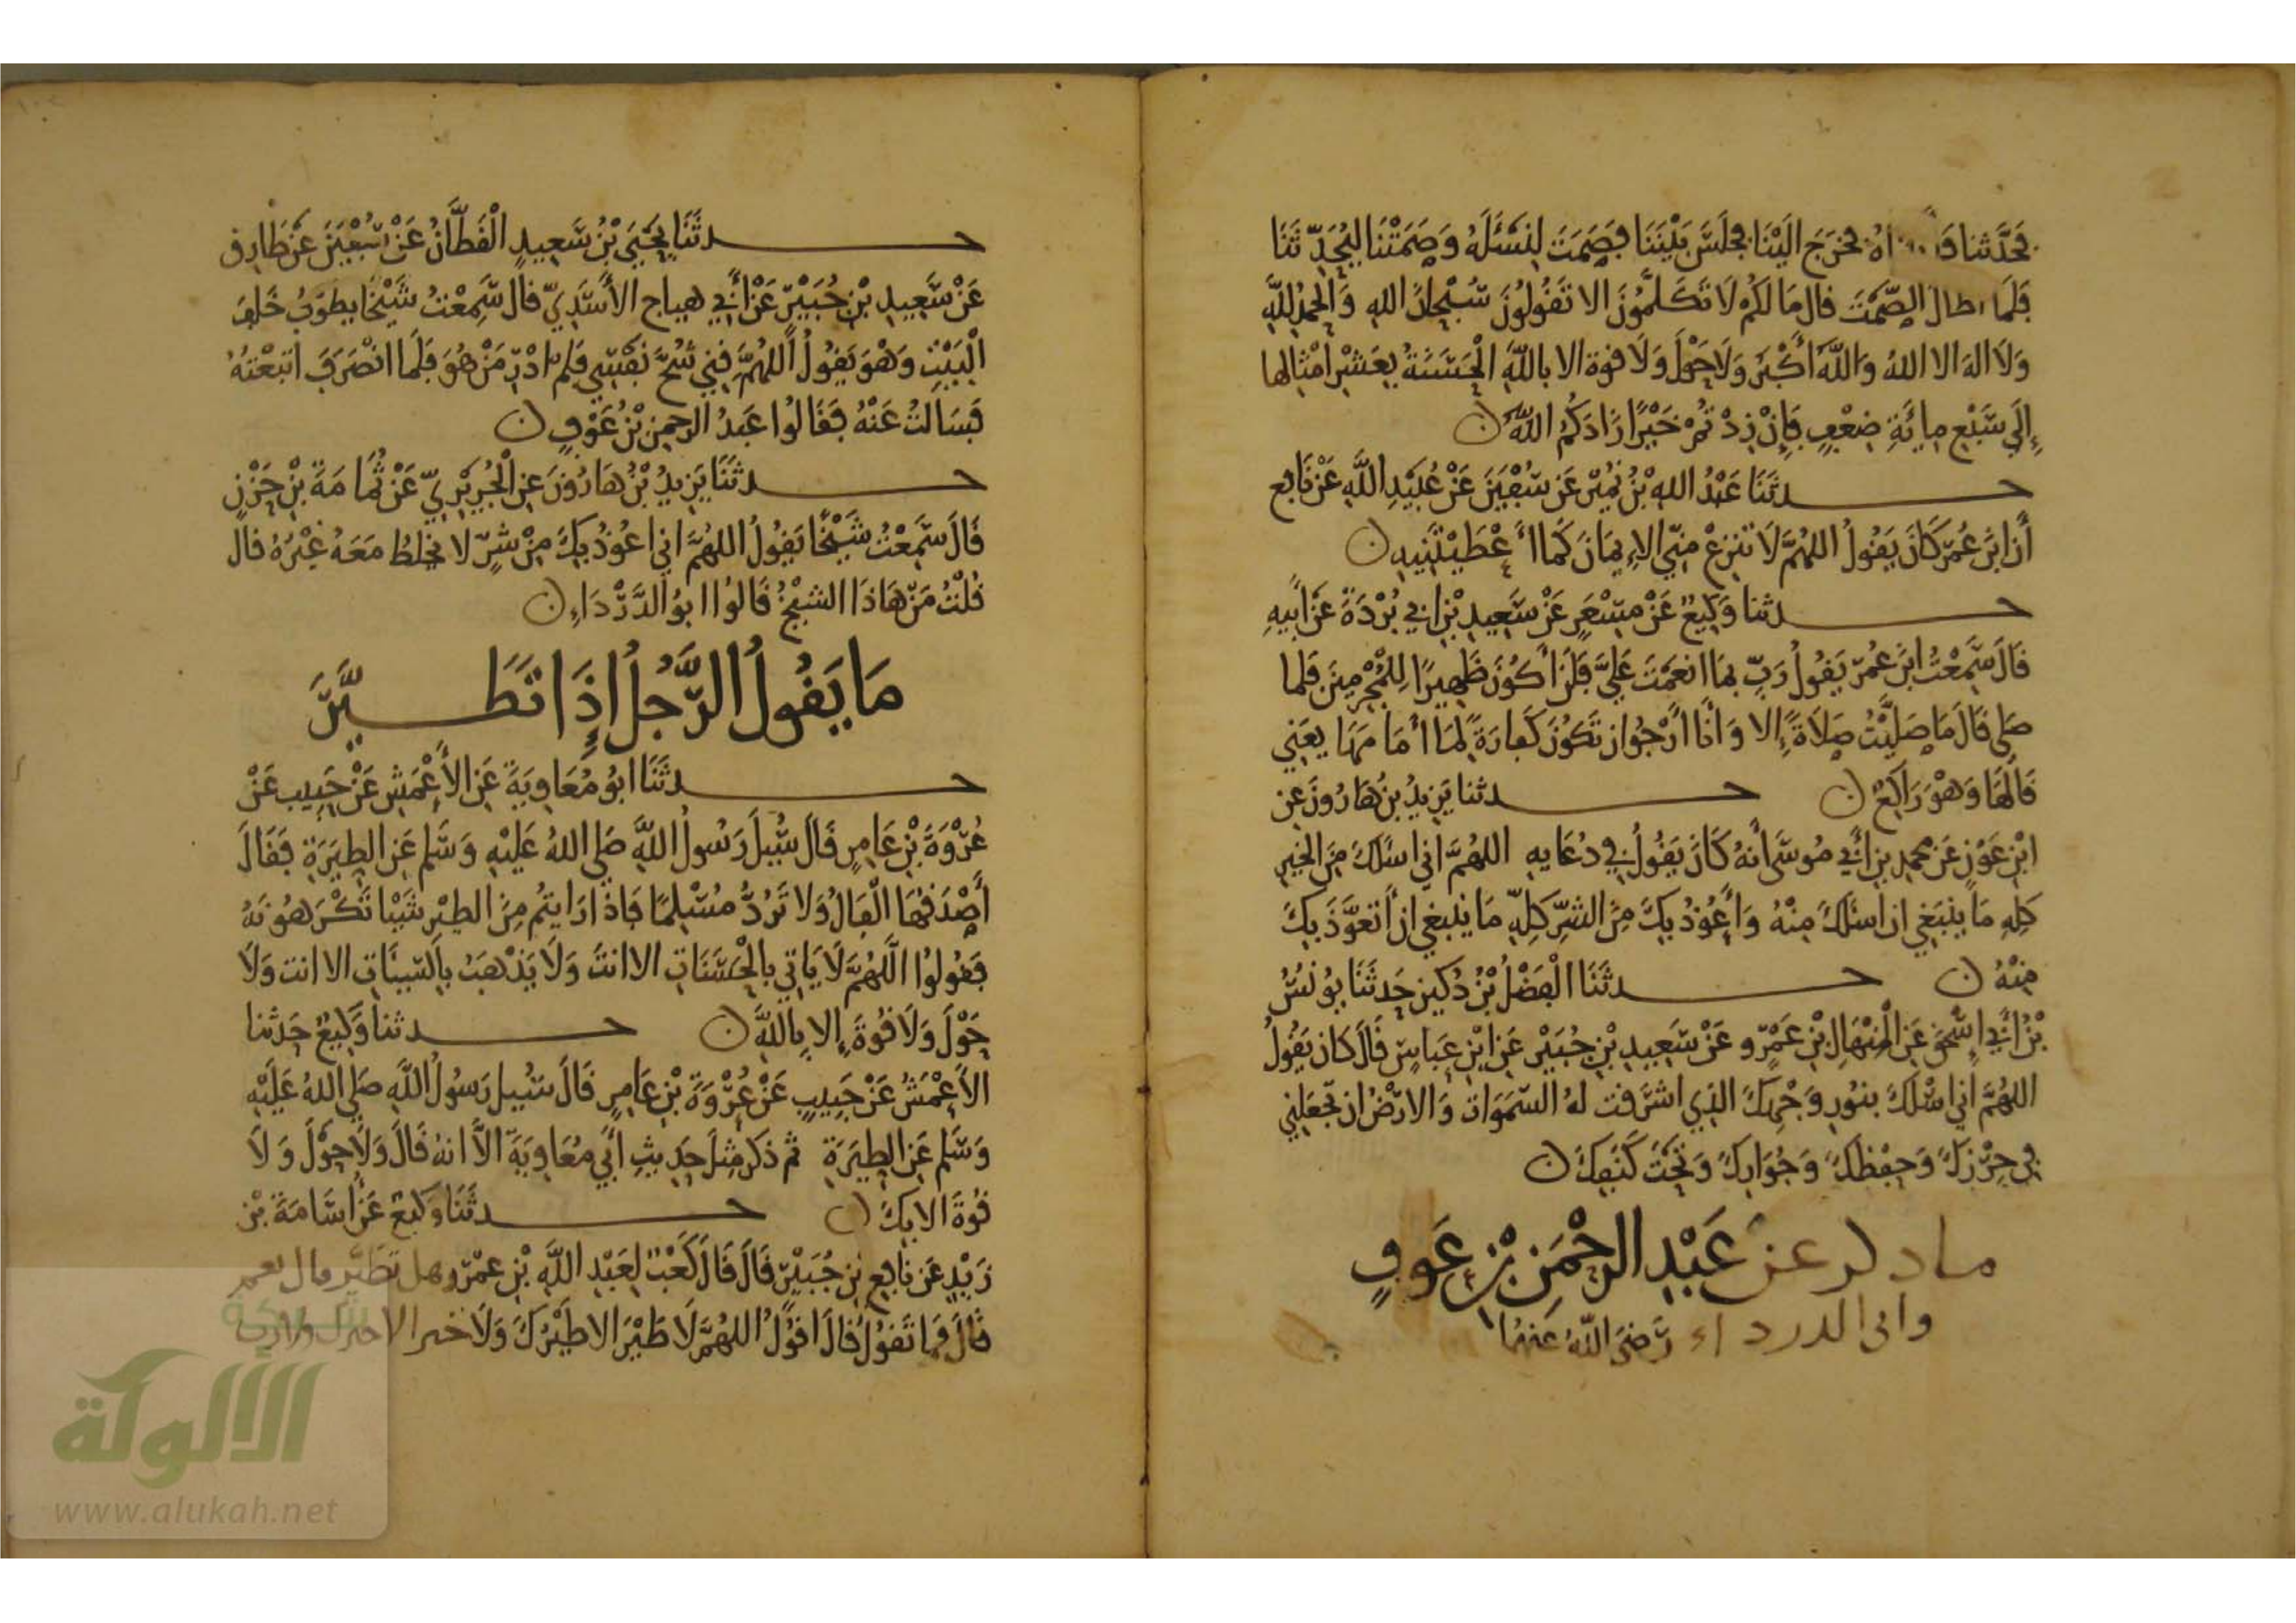 فَحَدَّثنا فَخَرَجَ الَيْنَا فجَلَسَ بَيْنَنَا فَصَمَتَ لِنَسْئَلَهُ وَصَمَتْنَا ليُحَدِّثَنَا
فَلَمَا اطال الصَّمْتَ قال مَا لَكُمْ لَا تَكَلَّمُونَ الا تَقُولُونَ سُبْحَانَ اللهِ وَالْحَمْدُ لِلَّهِ
وَلَا اله الا اللهُ وَاللَّهُ أَكْبَرُ وَلَا حَوْلَ وَلَا قوة الا باللَّهِ الْحَسَنَةُ بِعَشْرِ أمْثَالها
إِلَى سَبْعِ مِائَةِ ضِعْفٍ فَإِنْ زِدْتُمْ خَيْرًا زَادَكُمُ اللَّهُ ن
حدثَنَا عَبْدُ اللهِ بْنُ نُمَيْرٍ عَن سُفْيَنَ عَنْ عُبَيْدِ اللَّهِ عَنْ نَافِع
أَن ابْنَ عُمَرَ كَانَ يَقُولُ اللهُمَّ لَا تَنزِعْ مِنِّي الإِيمَانَ كَمَا أَعْطَيْتَنِيهِ ن
حدثنا وَكِيعٌ عَنْ مِسْعَرٍ عَنْ سَعِيدِ بْنِ ابي بُرْدَةَ عَنْ أَبِيهِ
قَالَ سَمِعْتُ ابْنَ عُمَرَ يَقُولُ رَبِّ بِمَا انعَمْتَ عَلَيَّ فَلَنْ أَكُونَ ظَهِيرًا لِلْمُجْرِمِينَ فَلما
صَلى قَالَ مَا صَلَّيْتُ صَلَاةً إِلا وَانَا أَرْجُوا ان تَكُونَ كَفارَةً لِمَا أمَامَهَا يعني
قَالَهَا وَهْوَ رَاكِعٌ ن حدثنا يَزِيدُ بنُ هَارُونَ عَنِ
ابْنِ عَوْنٍ عَن محمد بن أبي مُوسَى أنهُ كَانَ يَقُولُ في دُعَايِهِ اللهُمَّ اني اسْئَلُكَ مِنَ الخيرِ
كلِهِ مَا ينبَغِي ان اسئلكَ مِنْهُ وَأَعُوذُ بِكَ مِنَ الشَّرِّ كِلّهِ مَا ينبغي ان أتعَوَّذَ بِكَ
مِنْهُ ن حدثَنَا الْفَضْلُ بْنُ دُكَين حَدثَنَا يُونُسُ
بْنُ أَبِي اِسْحَقَ عَنِ الْمِنْهَالِ بْنِ عَمْرٍو عَنْ سَعِيدِ بْنِ جُبَيْرٍ عَنِ ابْنِ عَبَاسٍ قَالَ كَانَ يَقُولُ
اللهُمَّ اني اسْئلكَ بِنُورِ وَجْهِكَ الذِي اشرَقَت لهُ السَّمَوَات وَالارْضُ ان تجعَلَنِي
فِي حِرْزِكَ وَحِفْظِكَ وَجِوَارِكَ وَتَحْتَ كَنَفِكَ ن
ما ذكر عَن عَبْدِ الرَّحْمَنِ بْنِ عَوْفٍ
وابي الدرداء رَضِيَ اللَّهُ عَنْهُمَا
حدثَنَا يَحْيَى بْنُ سَعِيدٍ الْقَطَّانُ عَنْ سُفْيَنَ عَنْ طَارِق
عَنْ سَعِيدِ بْنِ جُبَيْرٍ عَنْ أَبِي هياج الأَسَدِيّ قالَ سَمِعْتُ شَيْخًا يطوفُ خَلفَ
الْبَيْتِ وَهْوَ يَقُولُ اللَّهُمَّ قِنِي شُحَّ نَفْسِي فَلم ادْرِ مَنْ هُوَ فَلَمَا انْصَرَفَ اتبَعْتهُ
فَسَالتُ عَنْهُ فَقَالُوا عَبدُ الرحمن بْنُ عَوْفٍ ن
حدثَنَا يَزِيدُ بْنُ هَارُونَ عَنِ الْجُرَيْرِيِّ عَنْ ثُمَامَةَ بْنِ حَزْنٍ
قَالَ سَمِعْتُ شَيْخًا يَقُولُ اللهُمَّ اني اعُوذُ بِكَ مِنْ شَرٍّ لا يخلطُ مَعَهُ غَيْرُهُ قال
قُلْتُ مَنْ هَاذَا الشيْخُ قَالُوا ابُو الدَّرْدَاءِ ن
مَا يَقُولُ الرَّجُلُ إِذَا تَطَيَّرَ
حدثَنَا ابُو مُعَاوِيَةَ عَنِ الأَعْمَشِ عَنْ حَبِيبٍ عَنْ
عُرْوَةَ بْنِ عَامِرٍ قَالَ سُيِلَ رَسُولُ اللَّهِ صَلى اللهُ عَلَيْهِ وَسَلم عَنِ الطِيَرَةِ فَقَالَ
أَصْدَقُهَا الْفَالُ وَلَا تَرُدُّ مُسْلِمًا فَاذَا رَايتُم مِنَ الطيْرِ شَيْيا تَكْرَهُونَهُ
فَقُولُوا اللَّهُمَّ لَا يَاتِي بِالْحَسَنَاتِ الا انتَ وَلَا يَذْهَبُ بِالسيِئَاتِ الا انت وَلَا
حَوْلَ وَلَا قُوةَ إِلا بِاللَّهِ ن حدثنا وَكِيعٌ حَدثنا
الأَعْمَشُ عَنْ حَبِيبٍ عَنْ عُرْوَةَ بْنِ عَامِرٍ قَالَ سُيِل رَسُولُ اللَّهِ صَلى اللهُ عَلَيْهِ
وَسَلم عَنِ الطِيَرَةِ ثم ذكر مِثلَ حَدِيثِ أَبِي مُعَاوِيَةَ الَّا انهُ قَالَ وَلَا حَوْلَ وَلَا
قُوةَ الا بِكَ ن حدثَنَا وَكِيعٌ عَنْ أُسَامَةَ بْنِ
زَيْدٍ عَن نافِعِ بْنِ جُبَيْرٍ قَالَ قَالَ كَعْبٌ لِعَبْدِ اللَّهِ بْنِ عَمْرٍو هل تَطَيَّر قال نعم
قَالَ فَمَا تَقُولُ قَالَ اقُولُ اللهُمَّ لَا طَيْرَ الا طَيْرُكَ وَلَا خير الا خيرك ولا رب
الألوكة
www.alukah.net